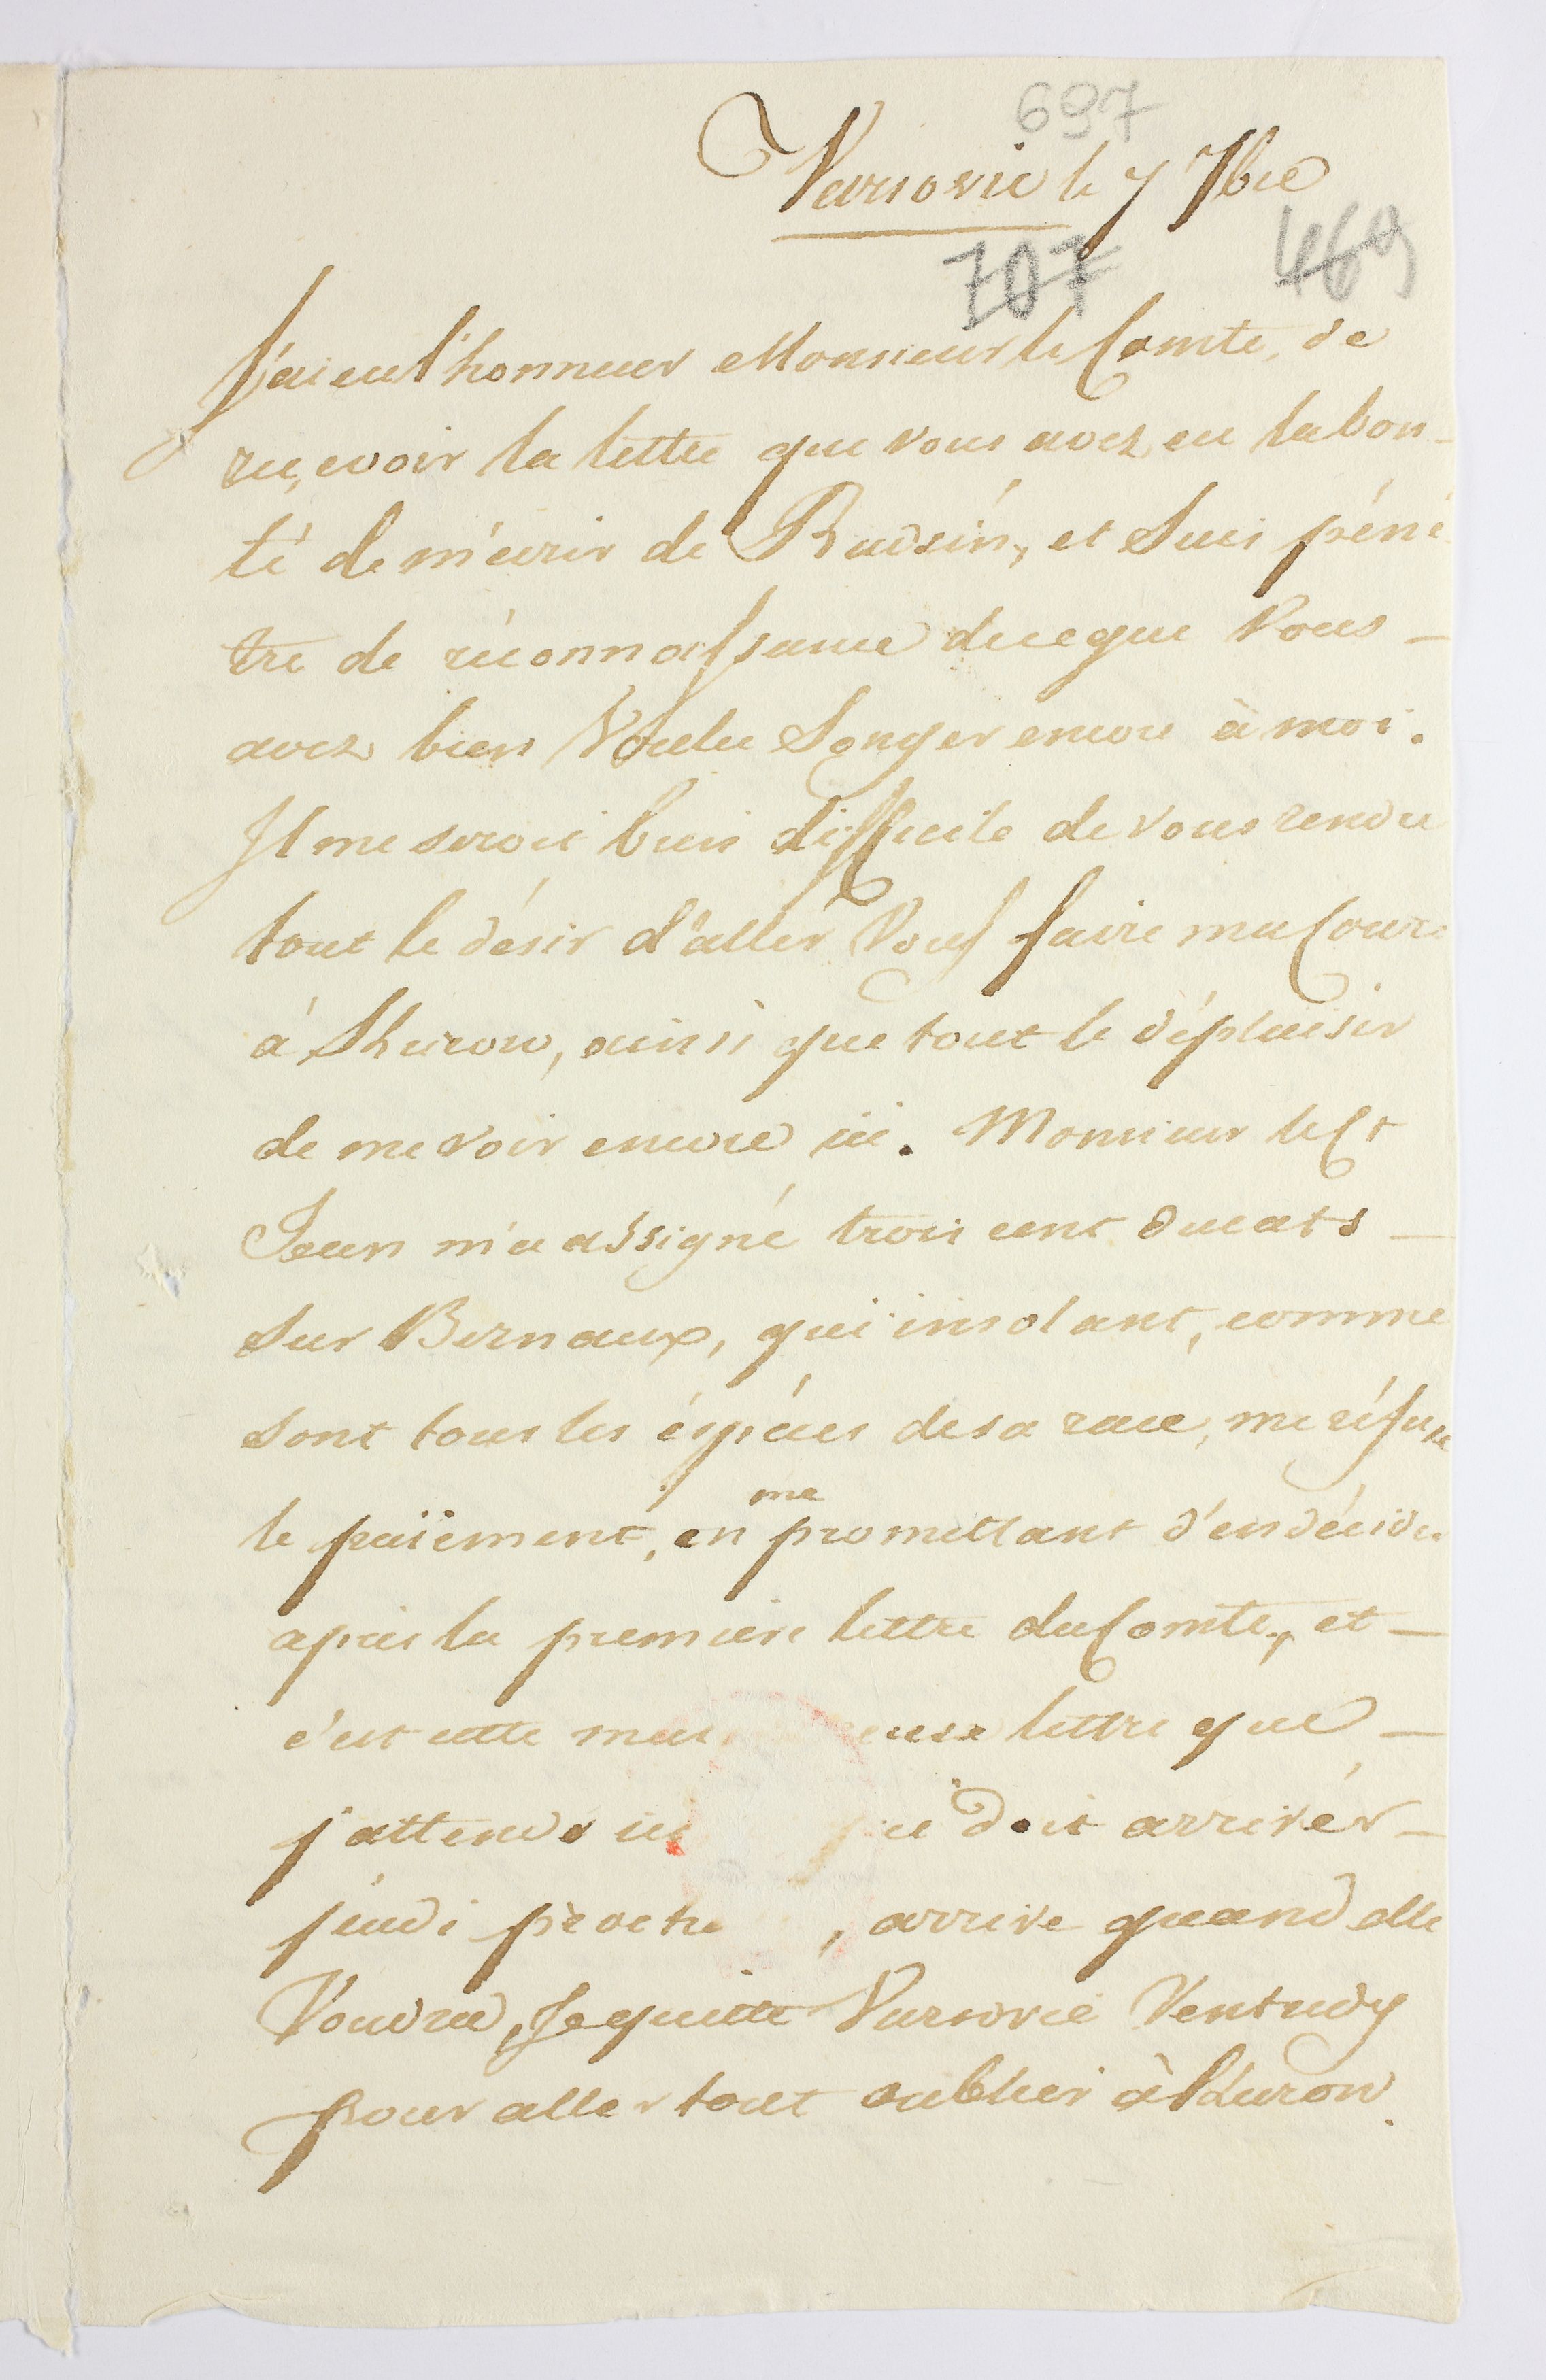 697
Varsovie le 7 7bre
707 469
J'ai eu l'honneur Monsieur le Comte, de
recevoir la lettre que vous avez eu la bon-
té de m'ecrir de Rudsin, et Suis péné
tre de réconnoissance de ce que Vous -
avez bien Voulu Songer encore à moi.
Il me seroit bien difficile de vous rendre
tout le désir d'aller Vous faire ma Cour
à Thurow, ainsi que tout le déplaisir
de me voir encore ici. Monsieur le Ct
Jean m'a assigné trois cent ducats -
sur Bernaux, qui insolant, comme
sont tous les éspéces de sa race, me réfuse
le païement, en me promettant d'en décider
apres la premiere lettre du Comte, et -
c'est cette mal euse lettre que -
j'attends ici ui doit arriver -
jeudi proch , arrive quand elle
Voudra, Je quitte Varsovie Ventredy
pour aller tout oublier à Thurow.